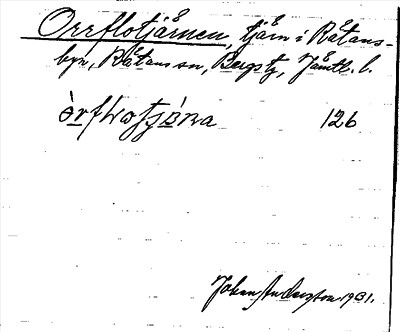 Orrflotjärnen, tjärn i Råtans-
byn, Råtans sn, Bergs tg, Jämtl. l.
òrflωtjǝ́na 126
Johan Anderson 1931.